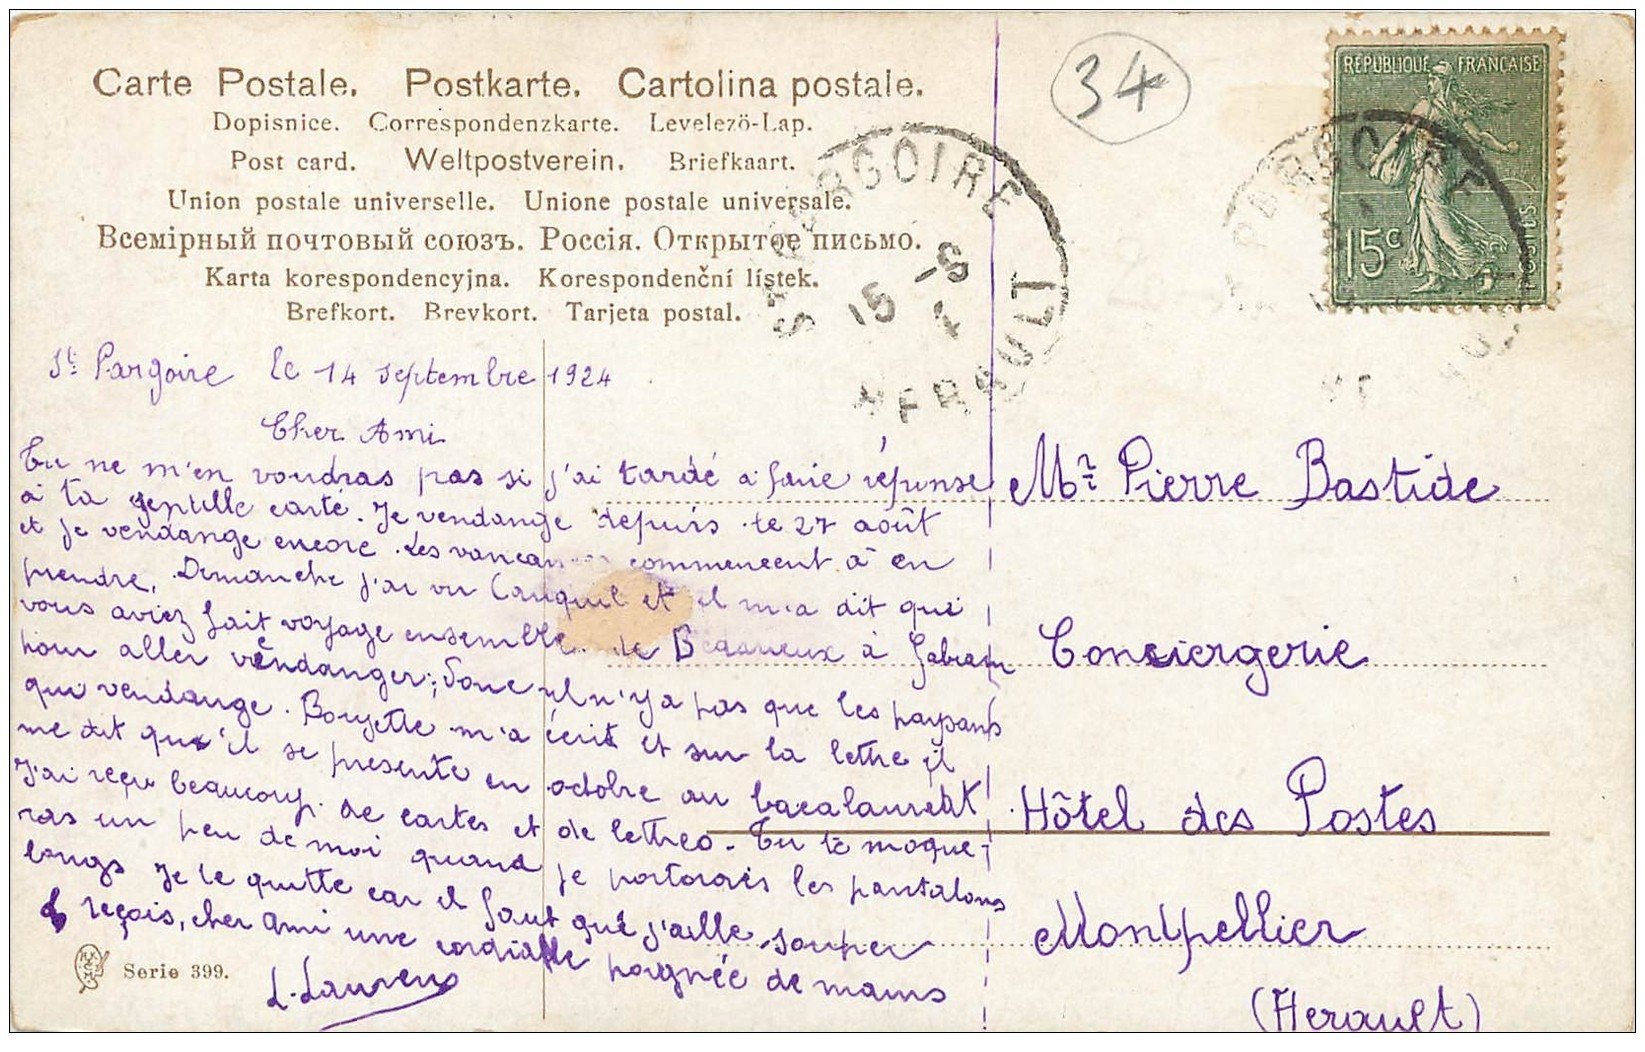 Carte Postale. Postkarte. Cartolina postale.
Dopisnice. Correspondenzkarte. Levelezö-Lap.
Post card. Weltpostverein. Briefkaart.
Union postale universelle. Unione postale universale.
Всемірный почтовый союзъ. Россія. Открытое письмо.
Karta korespondencyjna. Korespondenční lístek.
Brefkort. Brevkort. Tarjeta postal.
34
REPUBLIQUE FRANÇAISE
15c
POSTES
ST PARGOIRE
15 -9
HERAULT
PARGOIRE
St Pargoire le 14 septembre 1924
Cher Ami
Tu ne m'en voudras pas si j'ai tardé a faire réponse
a ta gentille carte. Je vendange depuis le 27 août
et je vendange encore. Les commencent à en
prendre. Dimanche j'ai vu Cauquil et il m'a dit que
vous aviez fait voyage ensemble de Bédarieux à Gabian
pour aller vendanger; Donc il n'y a pas que les paysans
qui vendange. Boujette m'a écrit et sur la lettre il
me dit qu'il se presente en octobre au bacalauréat
J'ai reçu beaucoup de cartes et de lettres. Tu te moque-
ras un peu de moi quand je porterais les pantalons
longs Je te quitte car il faut que j'aille souper
reçois, cher Ami une cordialle poignée de mains
L. Laurens
Serie 399.
Mr Pierre Bastide
Conciergerie
Hôtel des Postes
Montpellier
(Herault)